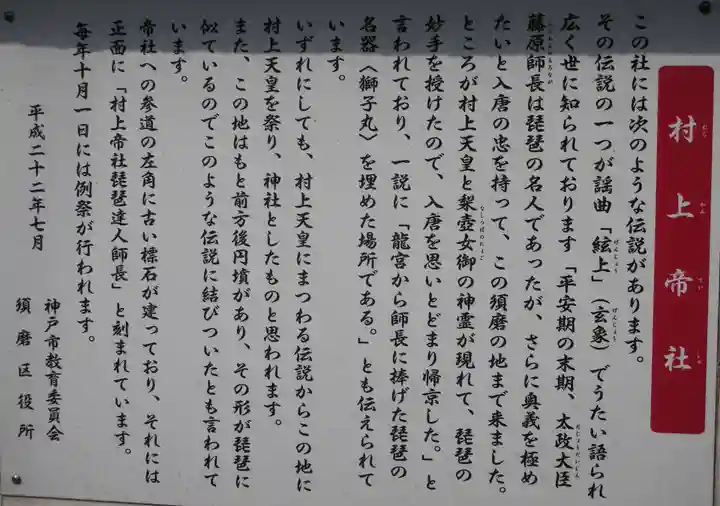 村上帝社
むら かみ てい しゃ
この社には次のような伝説があります。
その伝説の一つが謡曲「絃上」（玄象）でうたい語られ
げんじょう げんじょう
広く世に知られております「平安期の末期、太政大臣
だじょうだいじん
藤原師長は琵琶の名人であったが、さらに奥義を極め
ふじわらのもろなが
たいと入唐の志を持って、この須磨の地まで来ました。
ところが村上天皇と梨壺女御の神霊が現れて、琵琶の
なしつぼのにょうご
妙手を授けたので、入唐を思いとどまり帰京した。」と
言われており、一説に「龍宮から師長に捧げた琵琶の
名器〈獅子丸〉を埋めた場所である。」とも伝えられて
います。
いずれにしても、村上天皇にまつわる伝説からこの地に
村上天皇を祭り、神社としたものと思われます。
また、この地はもと前方後円墳があり、その形が琵琶に
似ているのでこのような伝説に結びついたとも言われて
います。
帝社への参道の左角に古い標石が建っており、それには
正面に「村上帝社琵琶達人師長」と刻まれています。
毎年十月一日には例祭が行われます。
平成二十二年七月
神戸市教育委員会
須磨区役所